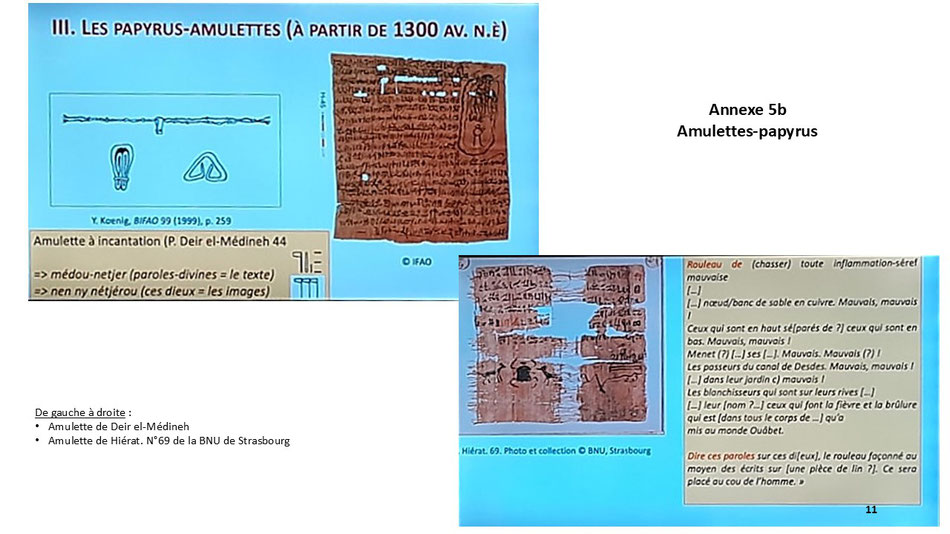 III. LES PAPYRUS-AMULETTES (À PARTIR DE 1300 AV. N.È)
Y. Koenig, BIFAO 99 (1999), p. 259
© IFAO
Amulette à incantation (P. Deir el-Médineh 44
=> médou-netjer (paroles-divines = le texte)
=> nen ny nétjérou (ces dieux = les images)
Annexe 5b
Amulettes-papyrus
De gauche à droite :
• Amulette de Deir el-Médineh
• Amulette de Hiérat. N°69 de la BNU de Strasbourg
Hiérat. 69. Photo et collection © BNU, Strasbourg
Rouleau de (chasser) toute inflammation-séref
mauvaise
[...]
[...] nœud/banc de sable en cuivre. Mauvais, mauvais
!
Ceux qui sont en haut sé[parés de ?] ceux qui sont en
bas. Mauvais, mauvais !
Menet (?) [...] ses [...]. Mauvais. Mauvais (?) !
Les passeurs du canal de Desdes. Mauvais, mauvais !
[...] dans leur jardin c) mauvais !
Les blanchisseurs qui sont sur leurs rives [...]
[...] leur [nom ?...] ceux qui font la fièvre et la brûlure
qui est [dans tous le corps de ...] qu'a
mis au monde Ouâbet.
Dire ces paroles sur ces di[eux], le rouleau façonné au
moyen des écrits sur [une pièce de lin ?]. Ce sera
placé au cou de l'homme. »
11